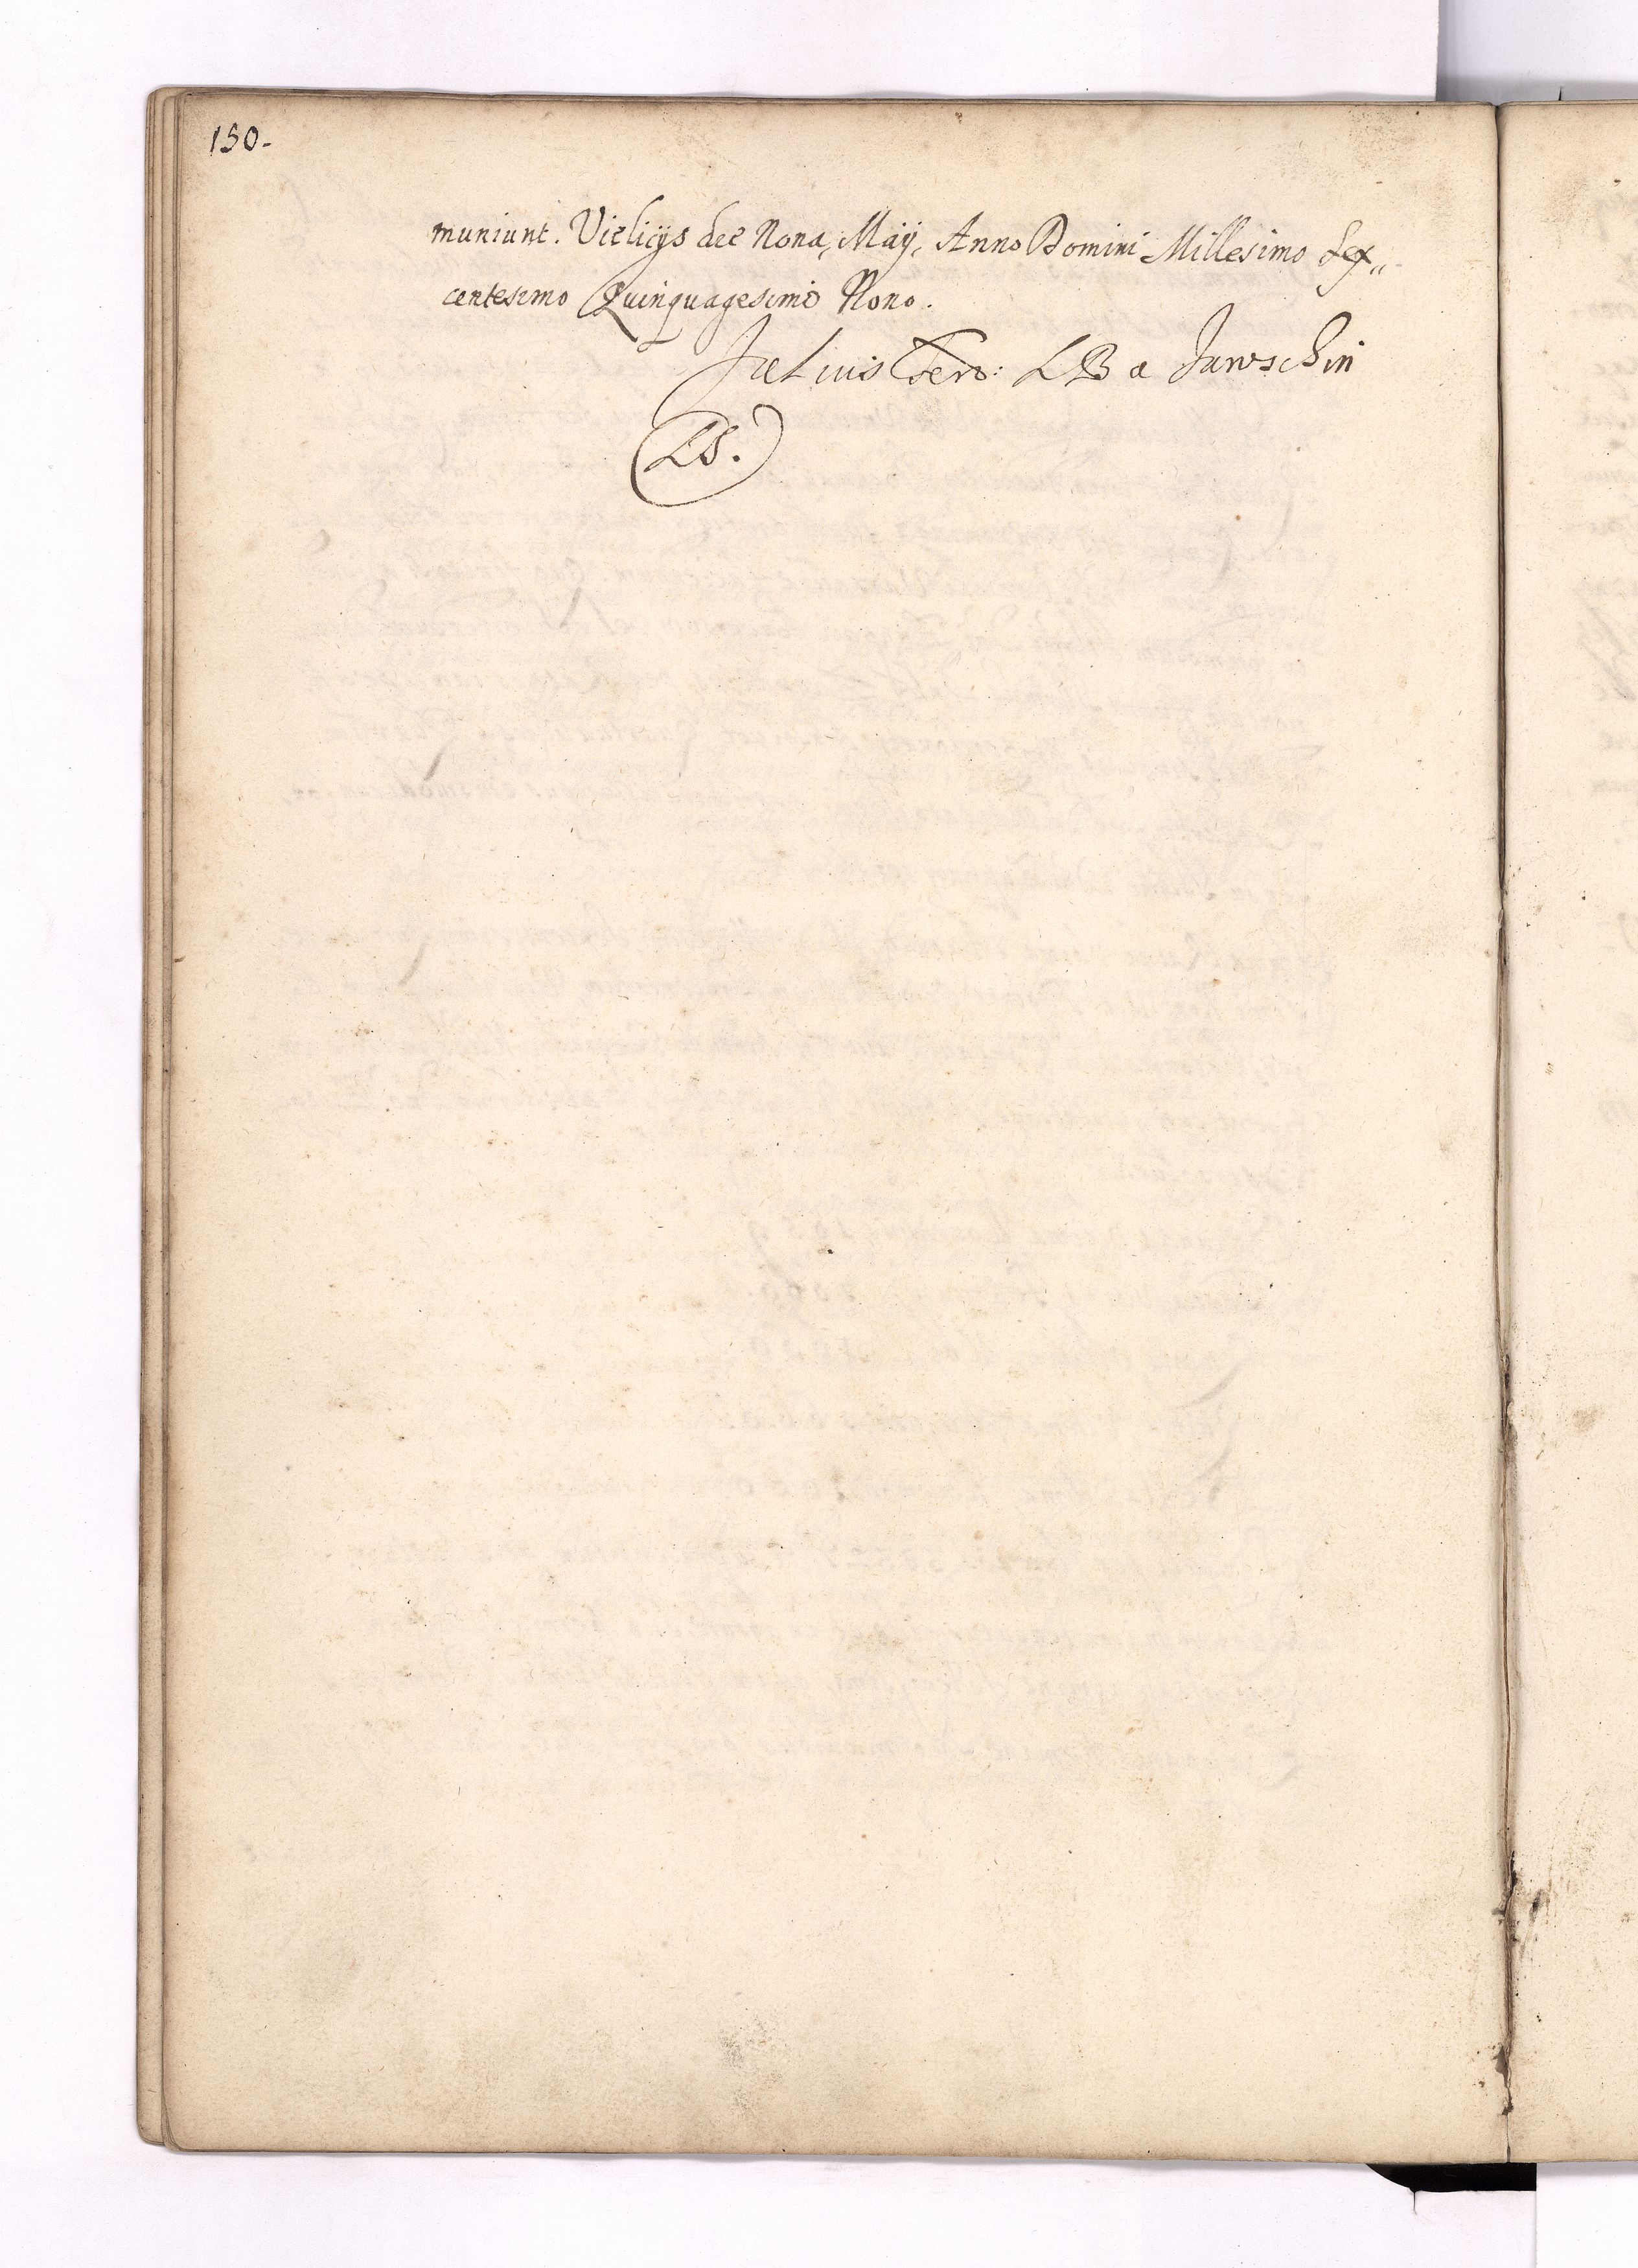 150.
muniunt. Vielicÿs die Nona, Maÿ, Anno Domini Millesimo Sex„
centesimo Quinquagesimo Nono.
Julius Ferd: LB a Jaroschin
LS.